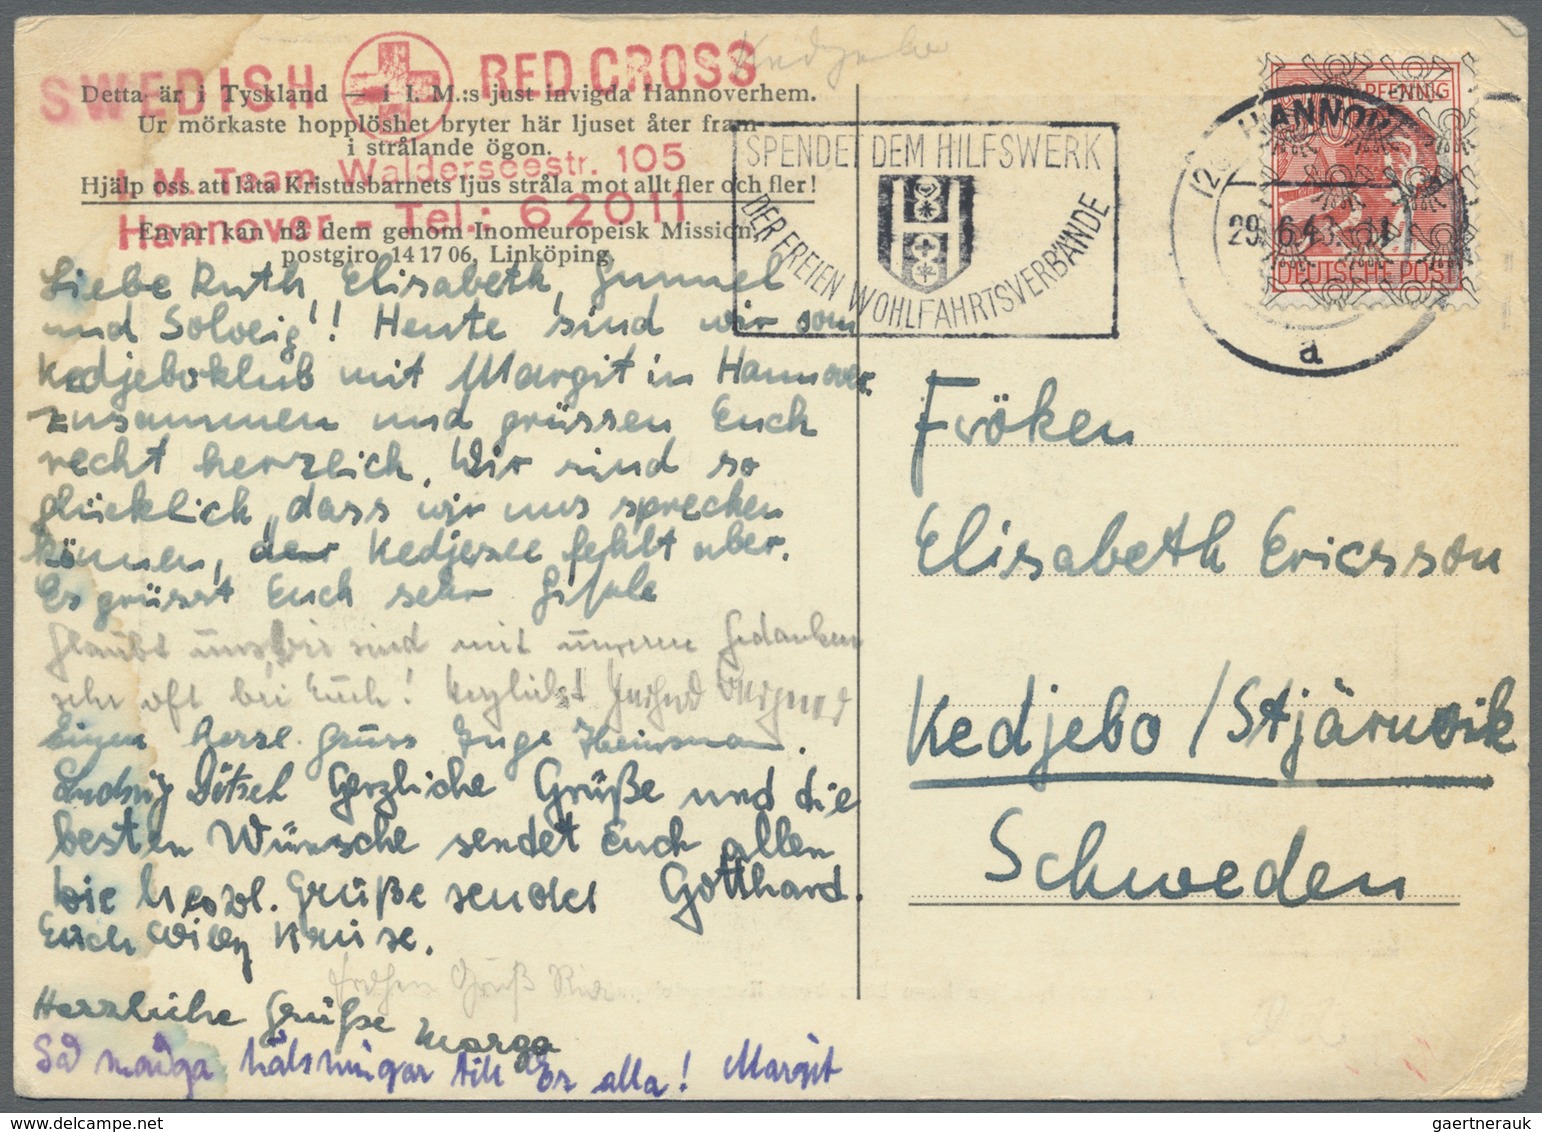 SWEDISH RED CROSS
Detta är i Tyskland — i I. M.:s just invigda Hannoverhem.
Ur mörkaste hopplöshet bryter här ljuset åter fram
i strålande ögon.
I. M. Team Walderseestr. 105
Hjälp oss att låta Kristusbarnets ljus stråla mot allt fler och fler!
Hannover - Tel.: 62011
Envar kan nå dem genom Inomeuropeisk Mission,
postgiro 14 17 06, Linköping.
Liebe Ruth, Elisabeth, Gunnel
und Solveig!! Heute sind wir vom
Kedjeboklub mit Margit in Hannover
zusammen und grüssen Euch
recht herzlich. Wir sind so
glücklich, dass wir uns sprechen
können, der Kedjesee fehlt aber.
Es grüsst Euch sehr
Glaubt uns, wir sind mit unseren Gedanken
sehr oft bei Euch!
Einen herzl. Gruss Inge
Ludwig Dötsch Herzliche Grüße und die
besten Wünsche sendet Euch allen
Gotthard.
Die herzl. Grüße sendet
Euch Willy Kruse.
Gruß
Herzliche Grüße Marga
Så många hälsningar till Er alla! Margit
SPENDET DEM HILFSWERK
DER FREIEN WOHLFAHRTSVERBÄNDE
HANNOVER
29.6.48. 11
a
PFENNIG
DEUTSCHE POST
Fröken
Elisabeth Ericsson
Kedjebo / Stjärnvik
Schweden
gaertnerauk @ delcampe.net